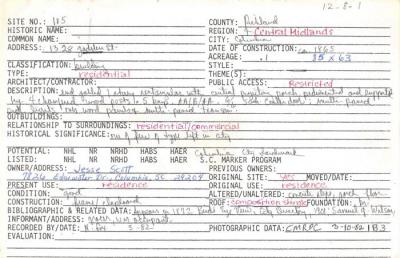 12-8-1
SITE NO. 185 COUNTY: Richland
HISTORIC NAME: REGION: 4 Central Midlands
COMMON NAME: CITY: Columbia
ADDRESS: 1328 St. DATE OF CONSTRUCTION: ca 1865
ACREAGE: .1 35 x 63
CLASSIFICATION: building STYLE:
TYPE: residential THEME(S):
ARCHITECT/CONTRACTOR: PUBLIC ACCESS: Restricted
DESCRIPTION: end gabled 1 story rectangular with central porch pedimented and supported
by 4 chamfered wood posts. 5 bays
with
OUTBUILDINGS:
RELATIONSHIP TO SURROUNDINGS: residential/commercial
HISTORICAL SIGNIFICANCE: one of few of type left in city
POTENTIAL: NHL NR NRHD HABS HAER Columbia City Landmark
LISTED: NHL NR NRHD HABS HAER S.C. MARKER PROGRAM
OWNER/ADDRESS: Jesse Scott PREVIOUS OWNERS:
7826 Edgewater Dr., Columbia, SC 29204 ORIGINAL SITE: yes MOVED/DATE:
PRESENT USE: residence ORIGINAL USE: residence
CONDITION: good ALTERED/UNALTERED: porch floor
CONSTRUCTION: frame/clapboard ROOF: composition shingle FOUNDATION: br
BIBLIOGRAPHIC & RELATED DATA: appears on 1872 Birds Eye View, City Directory Samuel G. Watson
INFORMANT/ADDRESS: occupant
RECORDED BY/DATE: 3-82 PHOTOGRAPHIC DATA: CMRPC 3-10-82 1B3
EVALUATION: